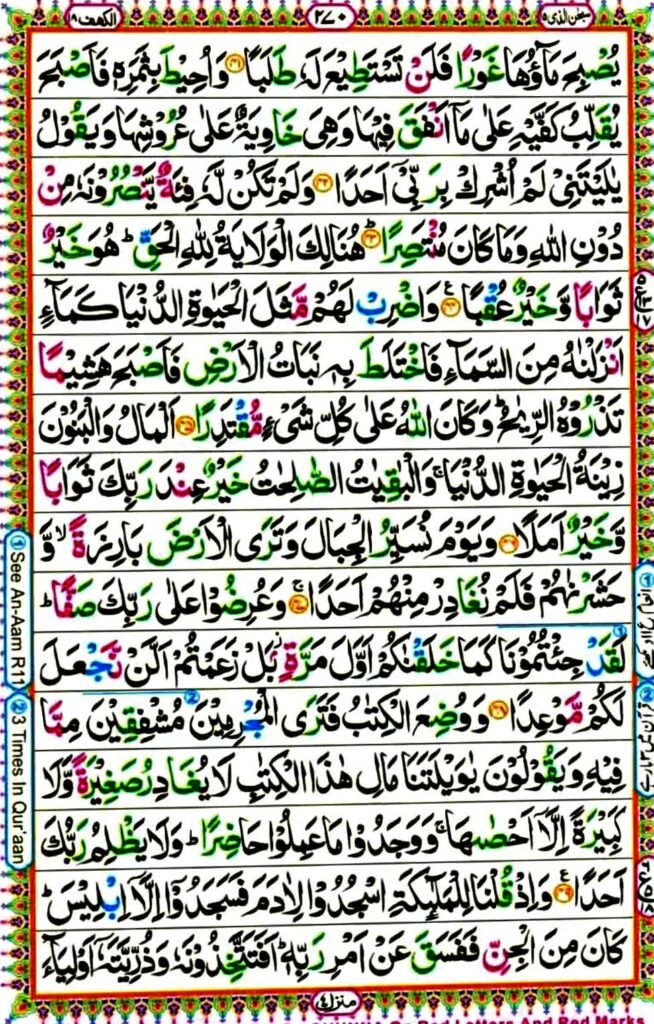 سبحٰن الذی ۱۵
۲۷۰
الکھف ۱۸
يُصْبِحَ مَآؤُهَا غَوْرًا فَلَنْ تَسْتَطِيْعَ لَهٗ طَلَبًا ﴿۴۱﴾ وَاُحِيْطَ بِثَمَرِهٖ فَاَصْبَحَ
يُقَلِّبُ كَفَّيْهِ عَلٰى مَاۤ اَنْفَقَ فِيْهَا وَهِيَ خَاوِيَةٌ عَلٰى عُرُوْشِهَا وَيَقُوْلُ
يٰلَيْتَنِيْ لَمْ اُشْرِكْ بِرَبِّيْۤ اَحَدًا ﴿۴۲﴾ وَلَمْ تَكُنْ لَّهٗ فِئَةٌ يَّنْصُرُوْنَهٗ مِنْ
دُوْنِ اللّٰهِ وَمَا كَانَ مُنْتَصِرًا ﴿۴۳﴾ هُنَالِكَ الْوَلَايَةُ لِلّٰهِ الْحَقِّ ؕ هُوَ خَيْرٌ
ثَوَابًا وَّخَيْرٌ عُقْبًا ﴿۴۴﴾ وَاضْرِبْ لَهُمْ مَّثَلَ الْحَيٰوةِ الدُّنْيَا كَمَآءٍ
اَنْزَلْنٰهُ مِنَ السَّمَآءِ فَاخْتَلَطَ بِهٖ نَبَاتُ الْاَرْضِ فَاَصْبَحَ هَشِيْمًا
تَذْرُوْهُ الرِّيٰحُ ؕ وَكَانَ اللّٰهُ عَلٰى كُلِّ شَيْءٍ مُّقْتَدِرًا ﴿۴۵﴾ اَلْمَالُ وَالْبَنُوْنَ
زِيْنَةُ الْحَيٰوةِ الدُّنْيَا ۚ وَالْبٰقِيٰتُ الصّٰلِحٰتُ خَيْرٌ عِنْدَ رَبِّكَ ثَوَابًا
وَّخَيْرٌ اَمَلًا ﴿۴۶﴾ وَيَوْمَ نُسَيِّرُ الْجِبَالَ وَتَرَى الْاَرْضَ بَارِزَةً ۙ وَّ
حَشَرْنٰهُمْ فَلَمْ نُغَادِرْ مِنْهُمْ اَحَدًا ﴿۴۷﴾ وَعُرِضُوْا عَلٰى رَبِّكَ صَفًّا ؕ
لَقَدْ جِئْتُمُوْنَا كَمَا خَلَقْنٰكُمْ اَوَّلَ مَرَّةٍ ؗ بَلْ زَعَمْتُمْ اَلَّنْ نَّجْعَلَ
لَكُمْ مَّوْعِدًا ﴿۴۸﴾ وَوُضِعَ الْكِتٰبُ فَتَرَى الْمُجْرِمِيْنَ مُشْفِقِيْنَ مِمَّا
فِيْهِ وَيَقُوْلُوْنَ يٰوَيْلَتَنَا مَالِ هٰذَا الْكِتٰبِ لَا يُغَادِرُ صَغِيْرَةً وَّلَا
كَبِيْرَةً اِلَّاۤ اَحْصٰىهَا ۚ وَوَجَدُوْا مَا عَمِلُوْا حَاضِرًا ؕ وَلَا يَظْلِمُ رَبُّكَ
اَحَدًا ﴿۴۹﴾ وَاِذْ قُلْنَا لِلْمَلٰٓئِكَةِ اسْجُدُوْا لِاٰدَمَ فَسَجَدُوْۤا اِلَّاۤ اِبْلِيْسَ ؕ
كَانَ مِنَ الْجِنِّ فَفَسَقَ عَنْ اَمْرِ رَبِّهٖ ؕ اَفَتَتَّخِذُوْنَهٗ وَذُرِّيَّتَهٗۤ اَوْلِيَآءَ
منزل ۴
① See An-Aam R11
② 3 Times In Qur'aan